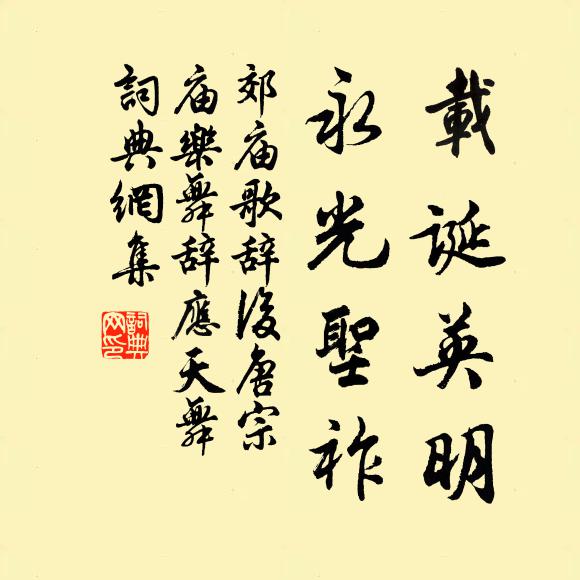 載誕英明
永光聖祚
郊庙歌辞後唐宗
庙樂舞辞應天舞
詞典網集
詞典网印